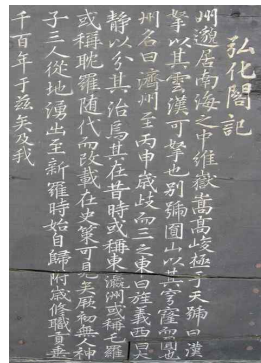 弘化閣記
州邈居南海之中維嶽嵩高峻極于天號曰漢
拏以其雲漢可拏也別號圎山以其穹窿而圎也
州名曰濟州至丙申歲歧而三之東曰旌義西曰大
静以分其治焉其在昔時或稱東瀛洲或稱乇羅
或稱耽羅随代而改載在史策可見矣厥初無人神
子三人從地湧出至新羅時始自歸附歲修職貢垂
千百年于兹矣及我